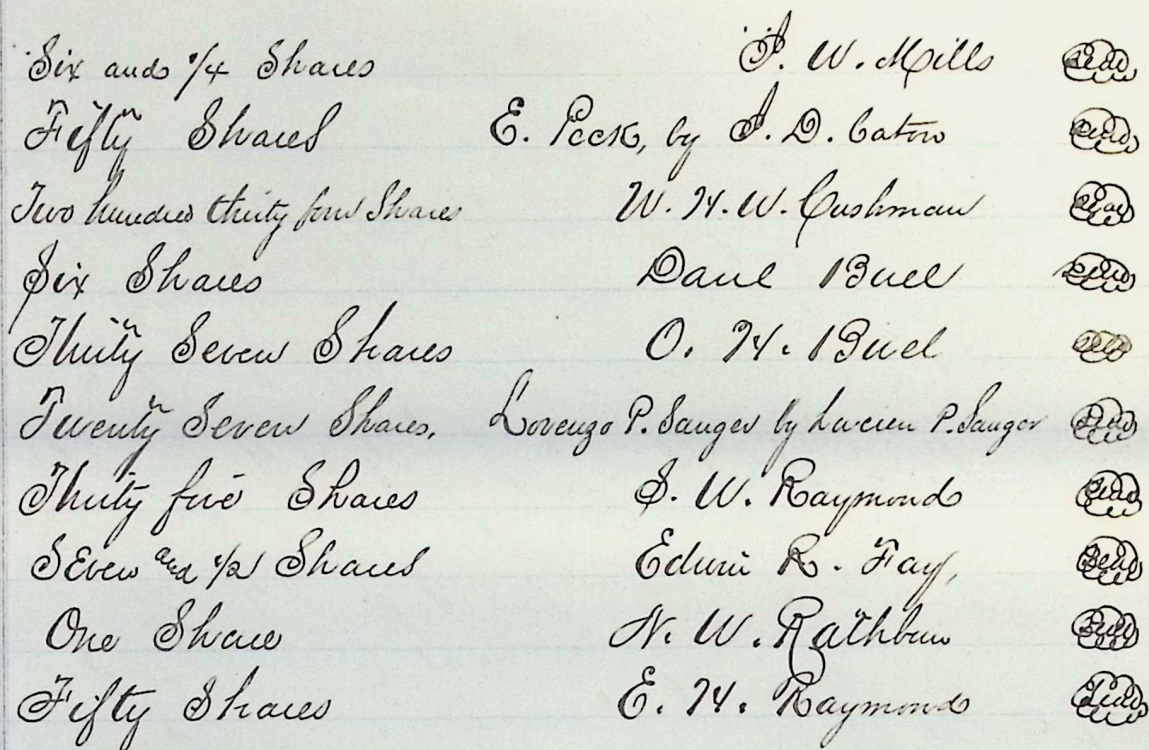 Six and 1/4 Shares J. W. Mills Seal
Fifty Shares E. Peck, by J. D. Caton Seal
Two hundred thirty four Shares W. H. W. Cushman Seal
Six Shares Danl Buel Seal
Thirty Seven Shares O. H. Buel Seal
Twenty Seven Shares, Lorenzo P. Sanger by Lucien P. Sanger Seal
Thirty five Shares S. W. Raymond Seal
Seven and 1/2 Shares Edwin R. Fay, Seal
One Share N. W. Rathbun Seal
Fifty Shares E. H. Raymond Seal